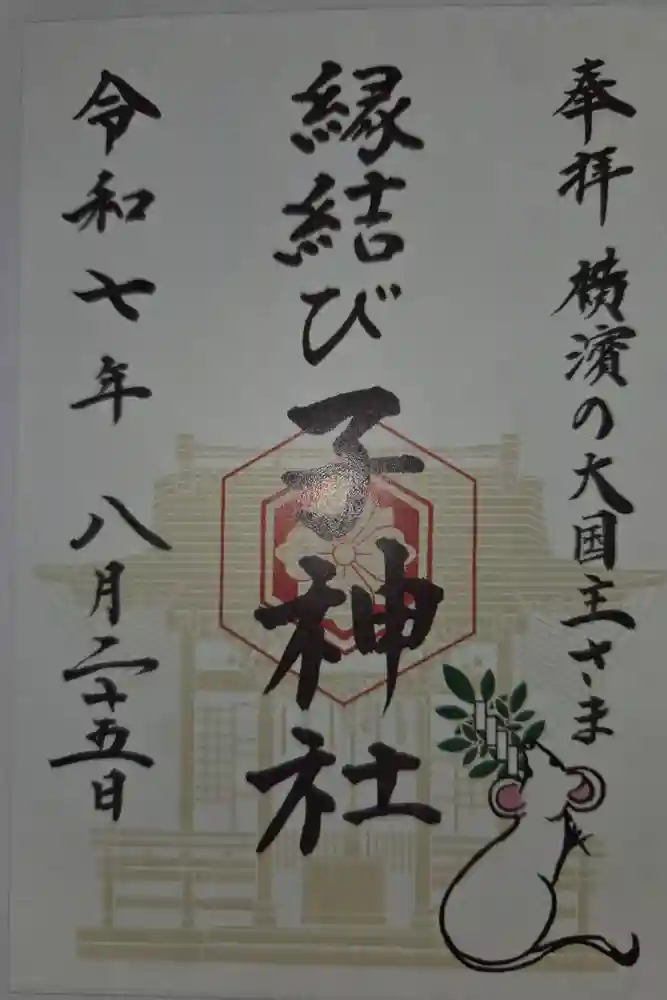 奉拝 横濱の大国主さま
縁結び 子神社
令和七年 八月二十五日